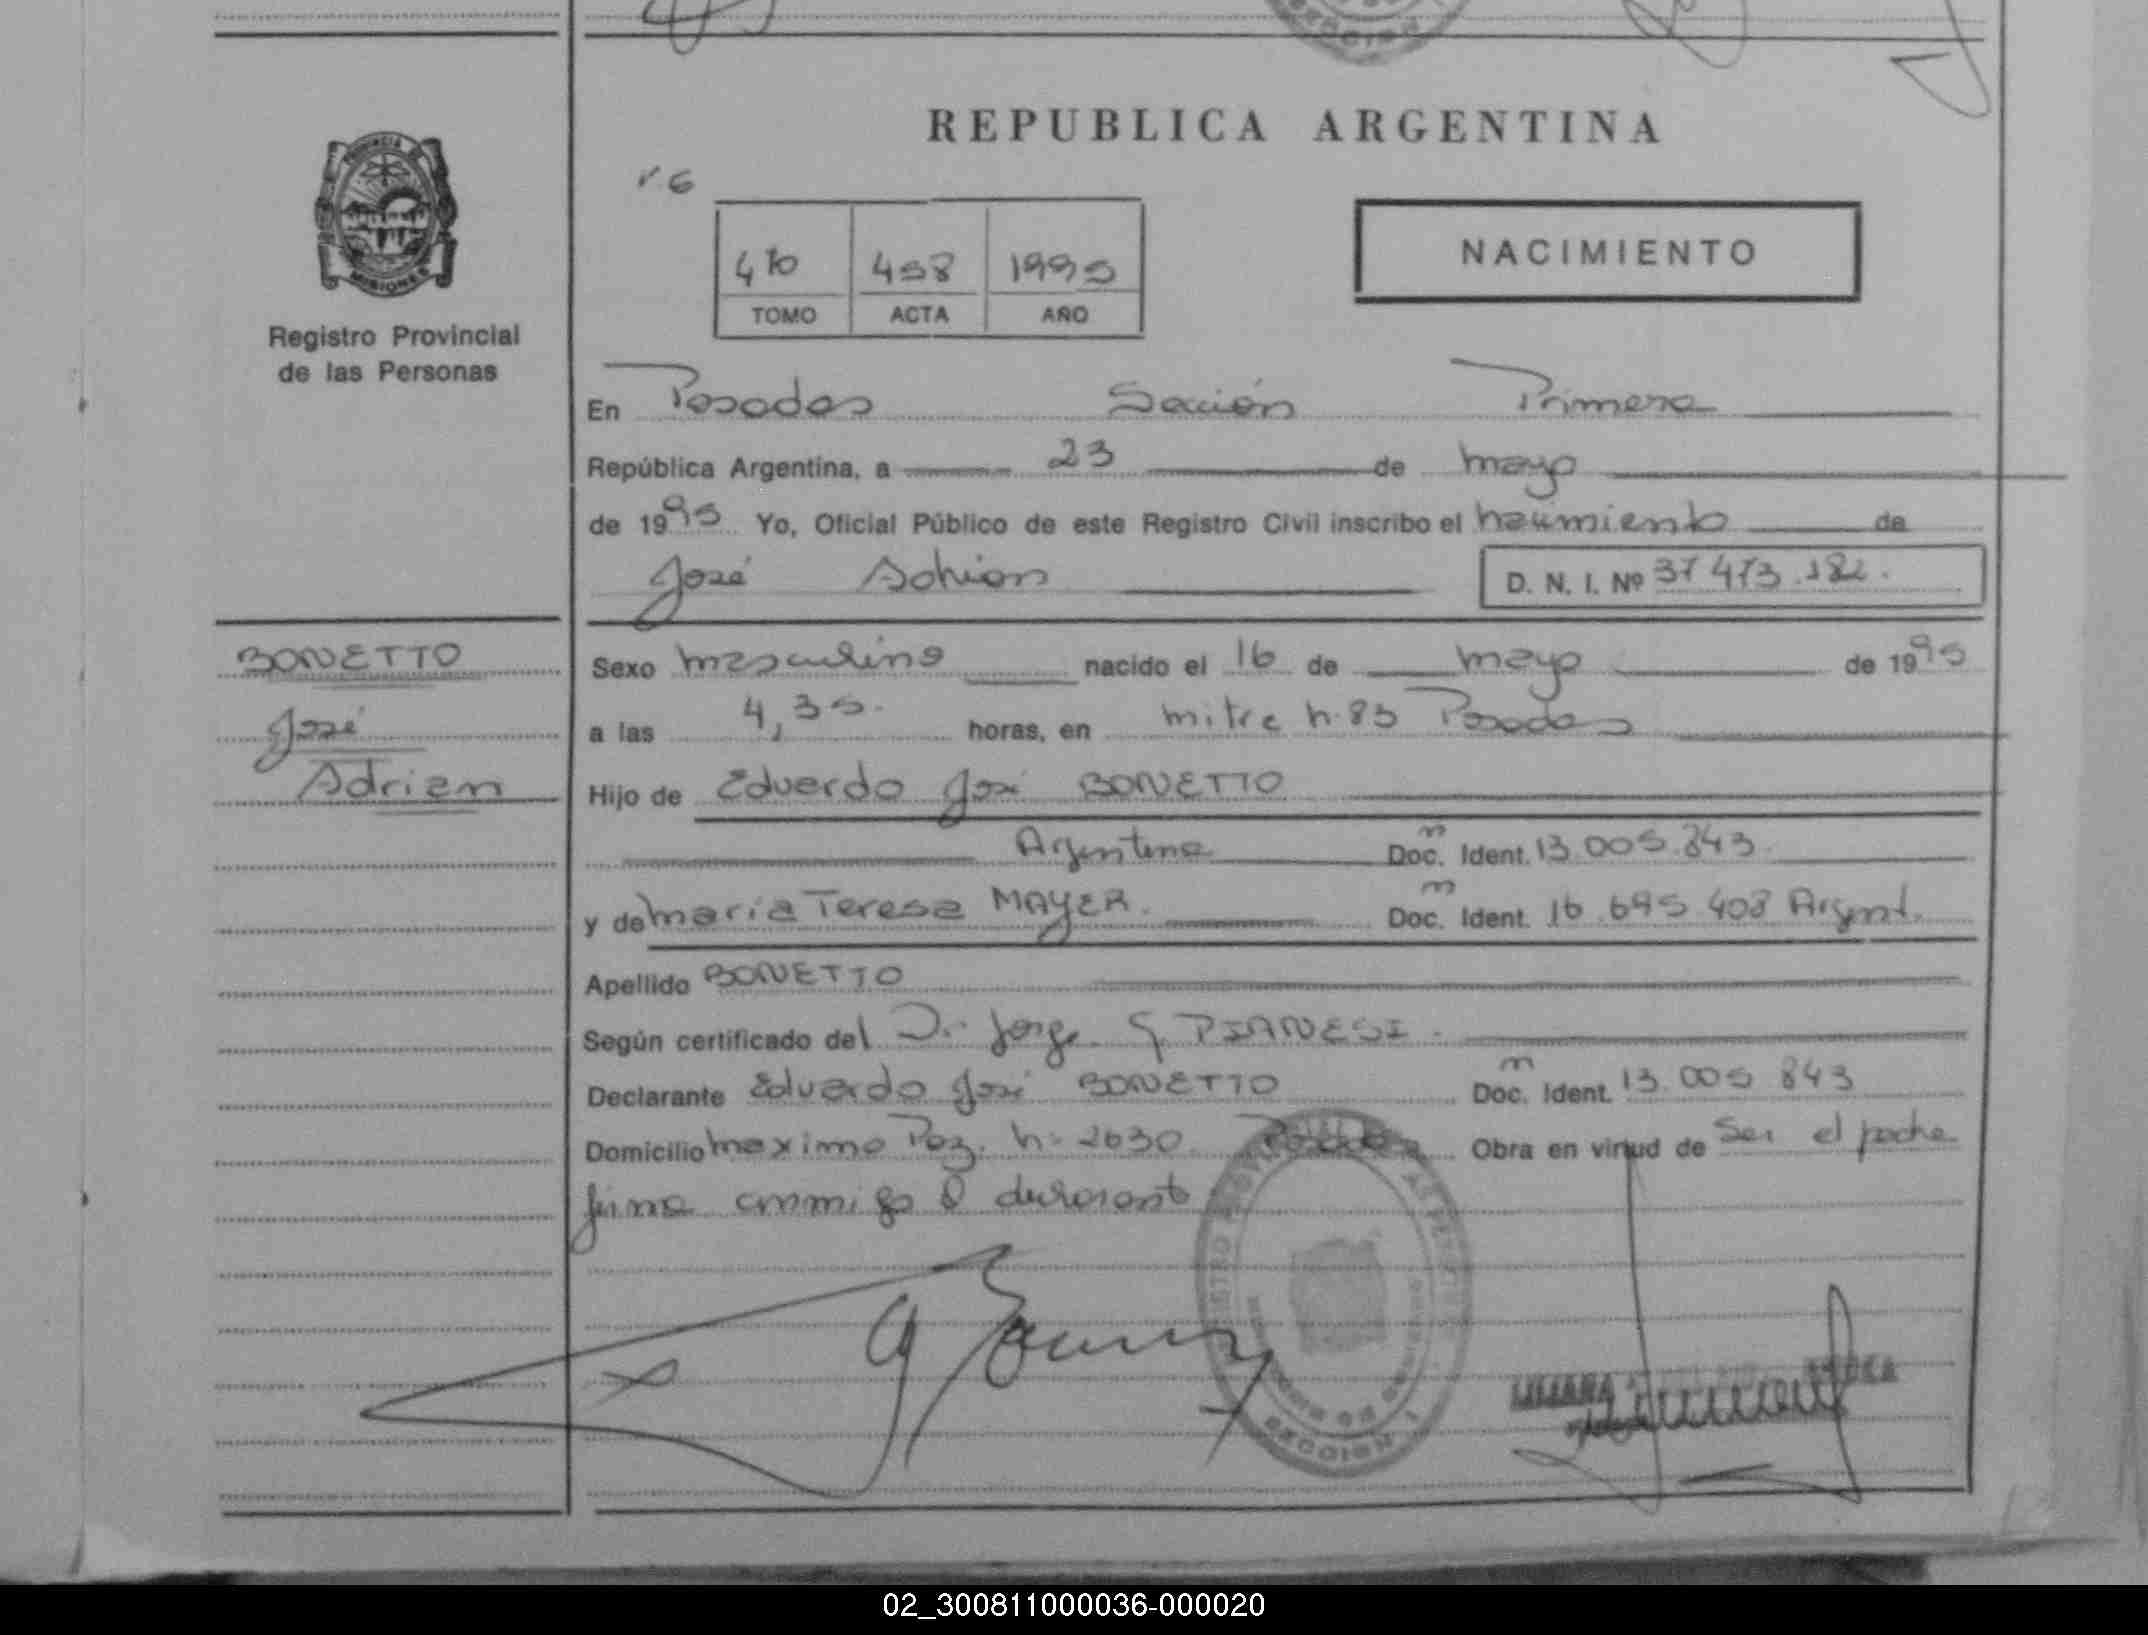 REPUBLICA ARGENTINA
PROVINCIA DE
MISIONES
Registro Provincial
de las Personas
NACIMIENTO
458 1995
TOMO ACTA AÑO
En Posadas Sección Primera
República Argentina, a 23 de mayo
de 1995 Yo, Oficial Público de este Registro Civil inscribo el nacimiento de
José Adrian D. N. I. Nº 37 473.182.
BONETTO
José
Adrian
Sexo masculino nacido el 16 de mayo de 1995
a las 4,35. horas, en mitre n. 83 Posadas
Hijo de Eduardo José BONETTO
Argentina Doc. Ident. 13.005.843
y de maria Teresa MAYER. Doc. Ident. 16.695.408 Argent.
Apellido BONETTO
Según certificado del Dr. Jorge G. PIANESI.
Declarante Eduardo José BONETTO Doc. Ident. 13.005 843
Domicilio maximo Paz. n- 2630 Posadas Obra en virtud de Ser el padre
firma conmigo el declarante
SECCION 1
LILIANA
02_300811000036-000020